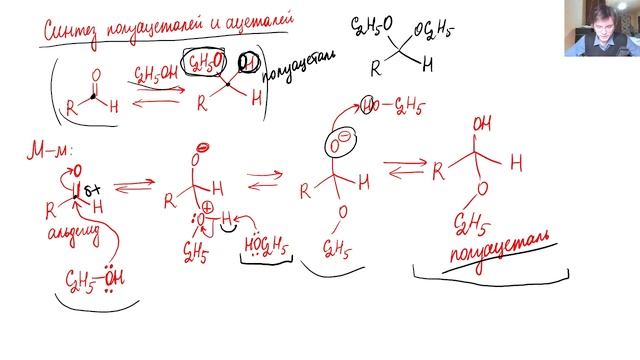 Синтез полуацеталей и ацеталей
C₂H₅O OC₂H₅
R H
O
R H
C₂H₅OH
C₂H₅O OH
R H
полуацеталь
М-м:
O
R H δ+
альдегид
C₂H₅-ÖH
O⊖
R H
O⊕-H
C₂H₅
HOC₂H₅
O⊖
R H
O
C₂H₅
HO-C₂H₅
OH
R H
O
C₂H₅
полуацеталь